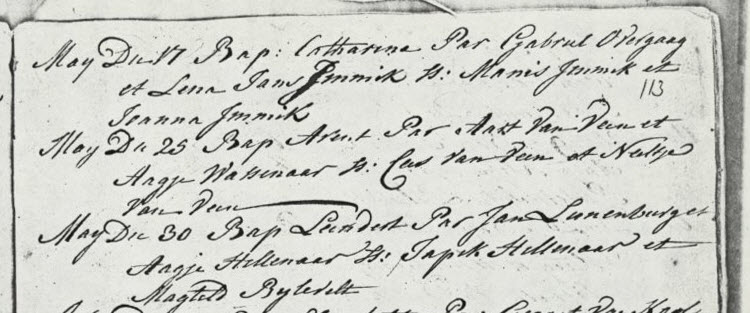 May Du 17 Bap: Catharina Par Gabriel Overgaag
et Lena Jans Immik ts: Manis Immik et
113
Joanna Immik
May Du 25 Bap Arent Par Aart Van Veen et
Aagje Wassenaar ts: Ces Van Veen et Neeltje
Van Veen
May Du 30 Bap Leendert Par Jan Lunenburg et
Aagje Hellenaar ts: Japik Hellenaar et
Magteld Byleveld